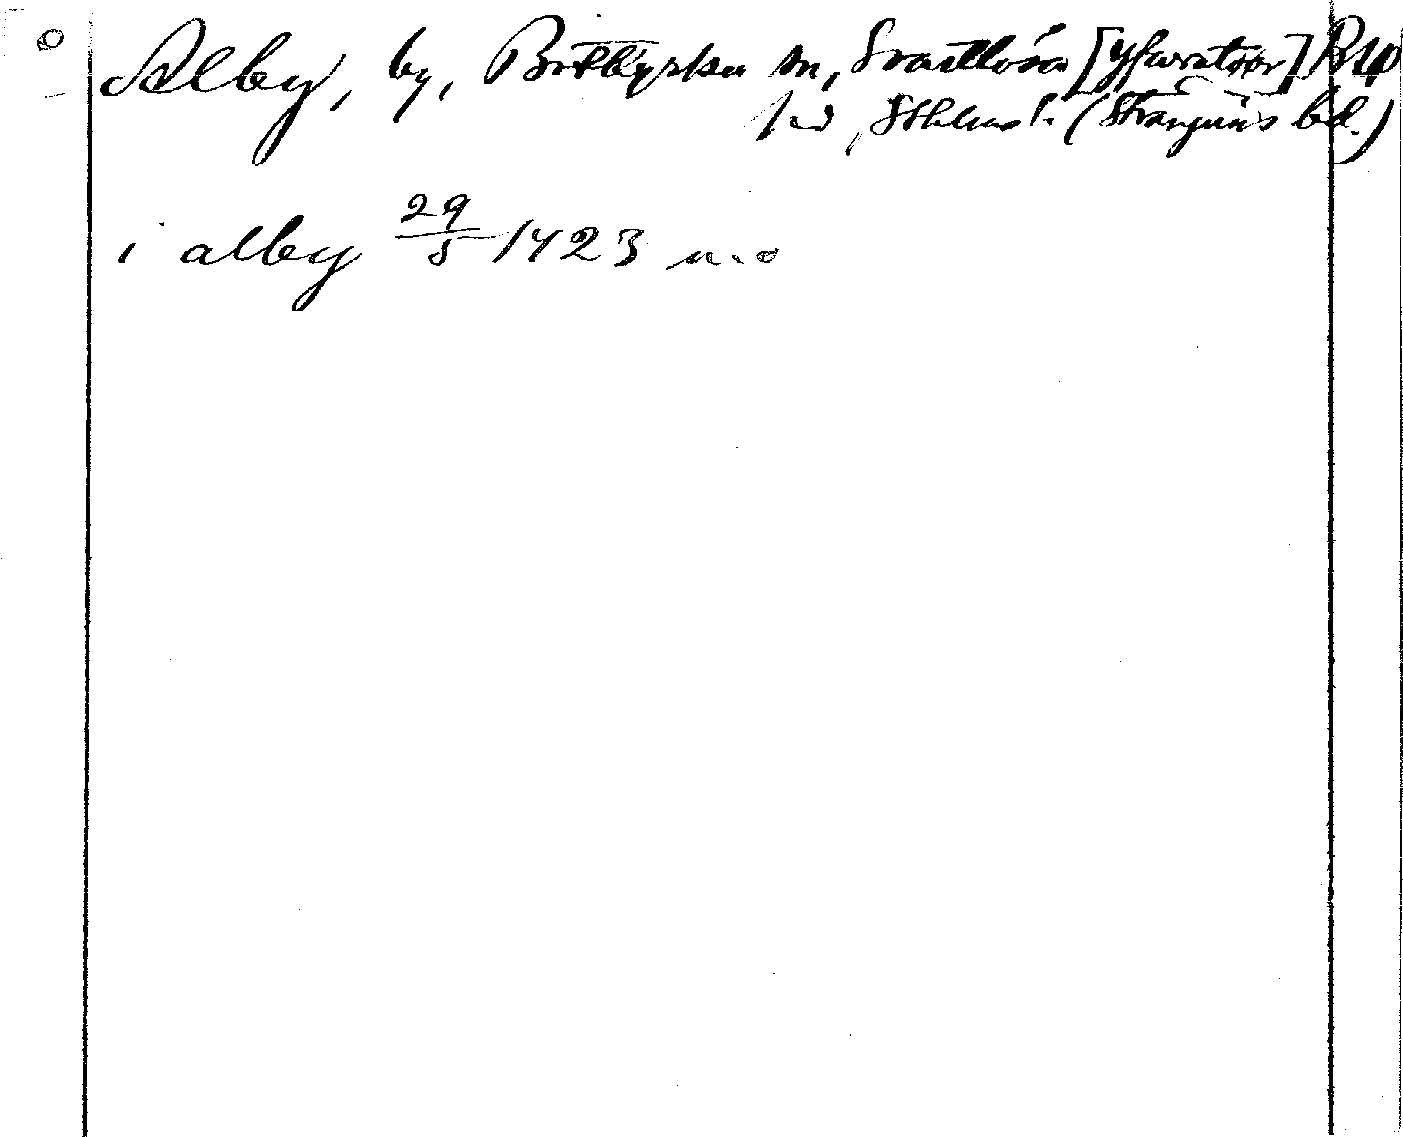 Alby, by, Botkyrka sn, Svartlösa
hd, Sthlms l. (Strängnäs bd.)
i alby 29/5 1423